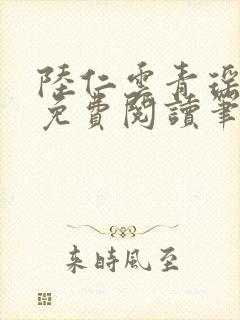 陸仁雲青瑤
免費閱讀筆
来時風至